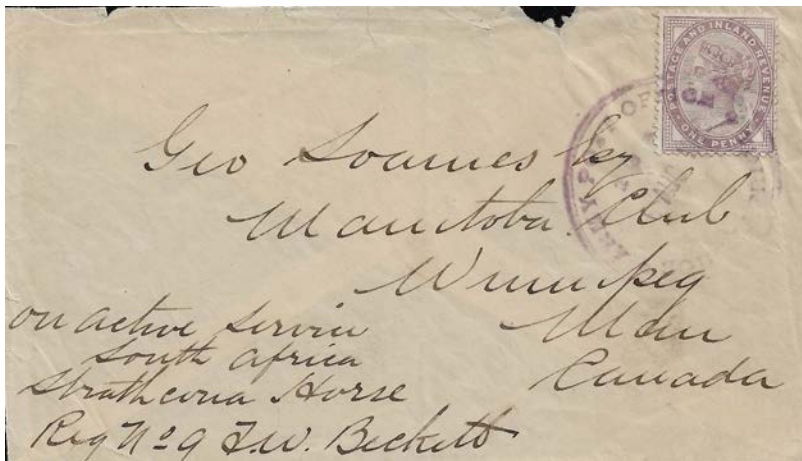 POSTAGE AND INLAND REVENUE
ONE PENNY
ARMY P
Geo Soames Esq
Manitoba Club
Winnipeg
Man
Canada
on active service
South Africa
Strathcona Horse
Reg No 9 F.W. Beckett